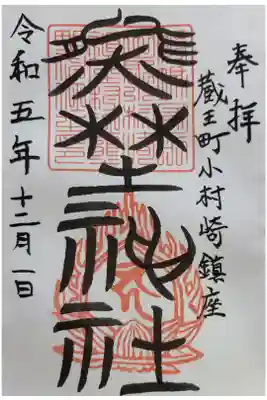 奉拝
蔵王町小村崎鎮座
神社
令和五年十二月一日